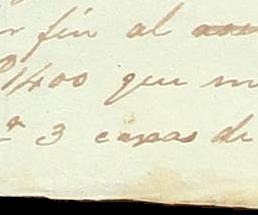 fin al
1400 que
3 casas de